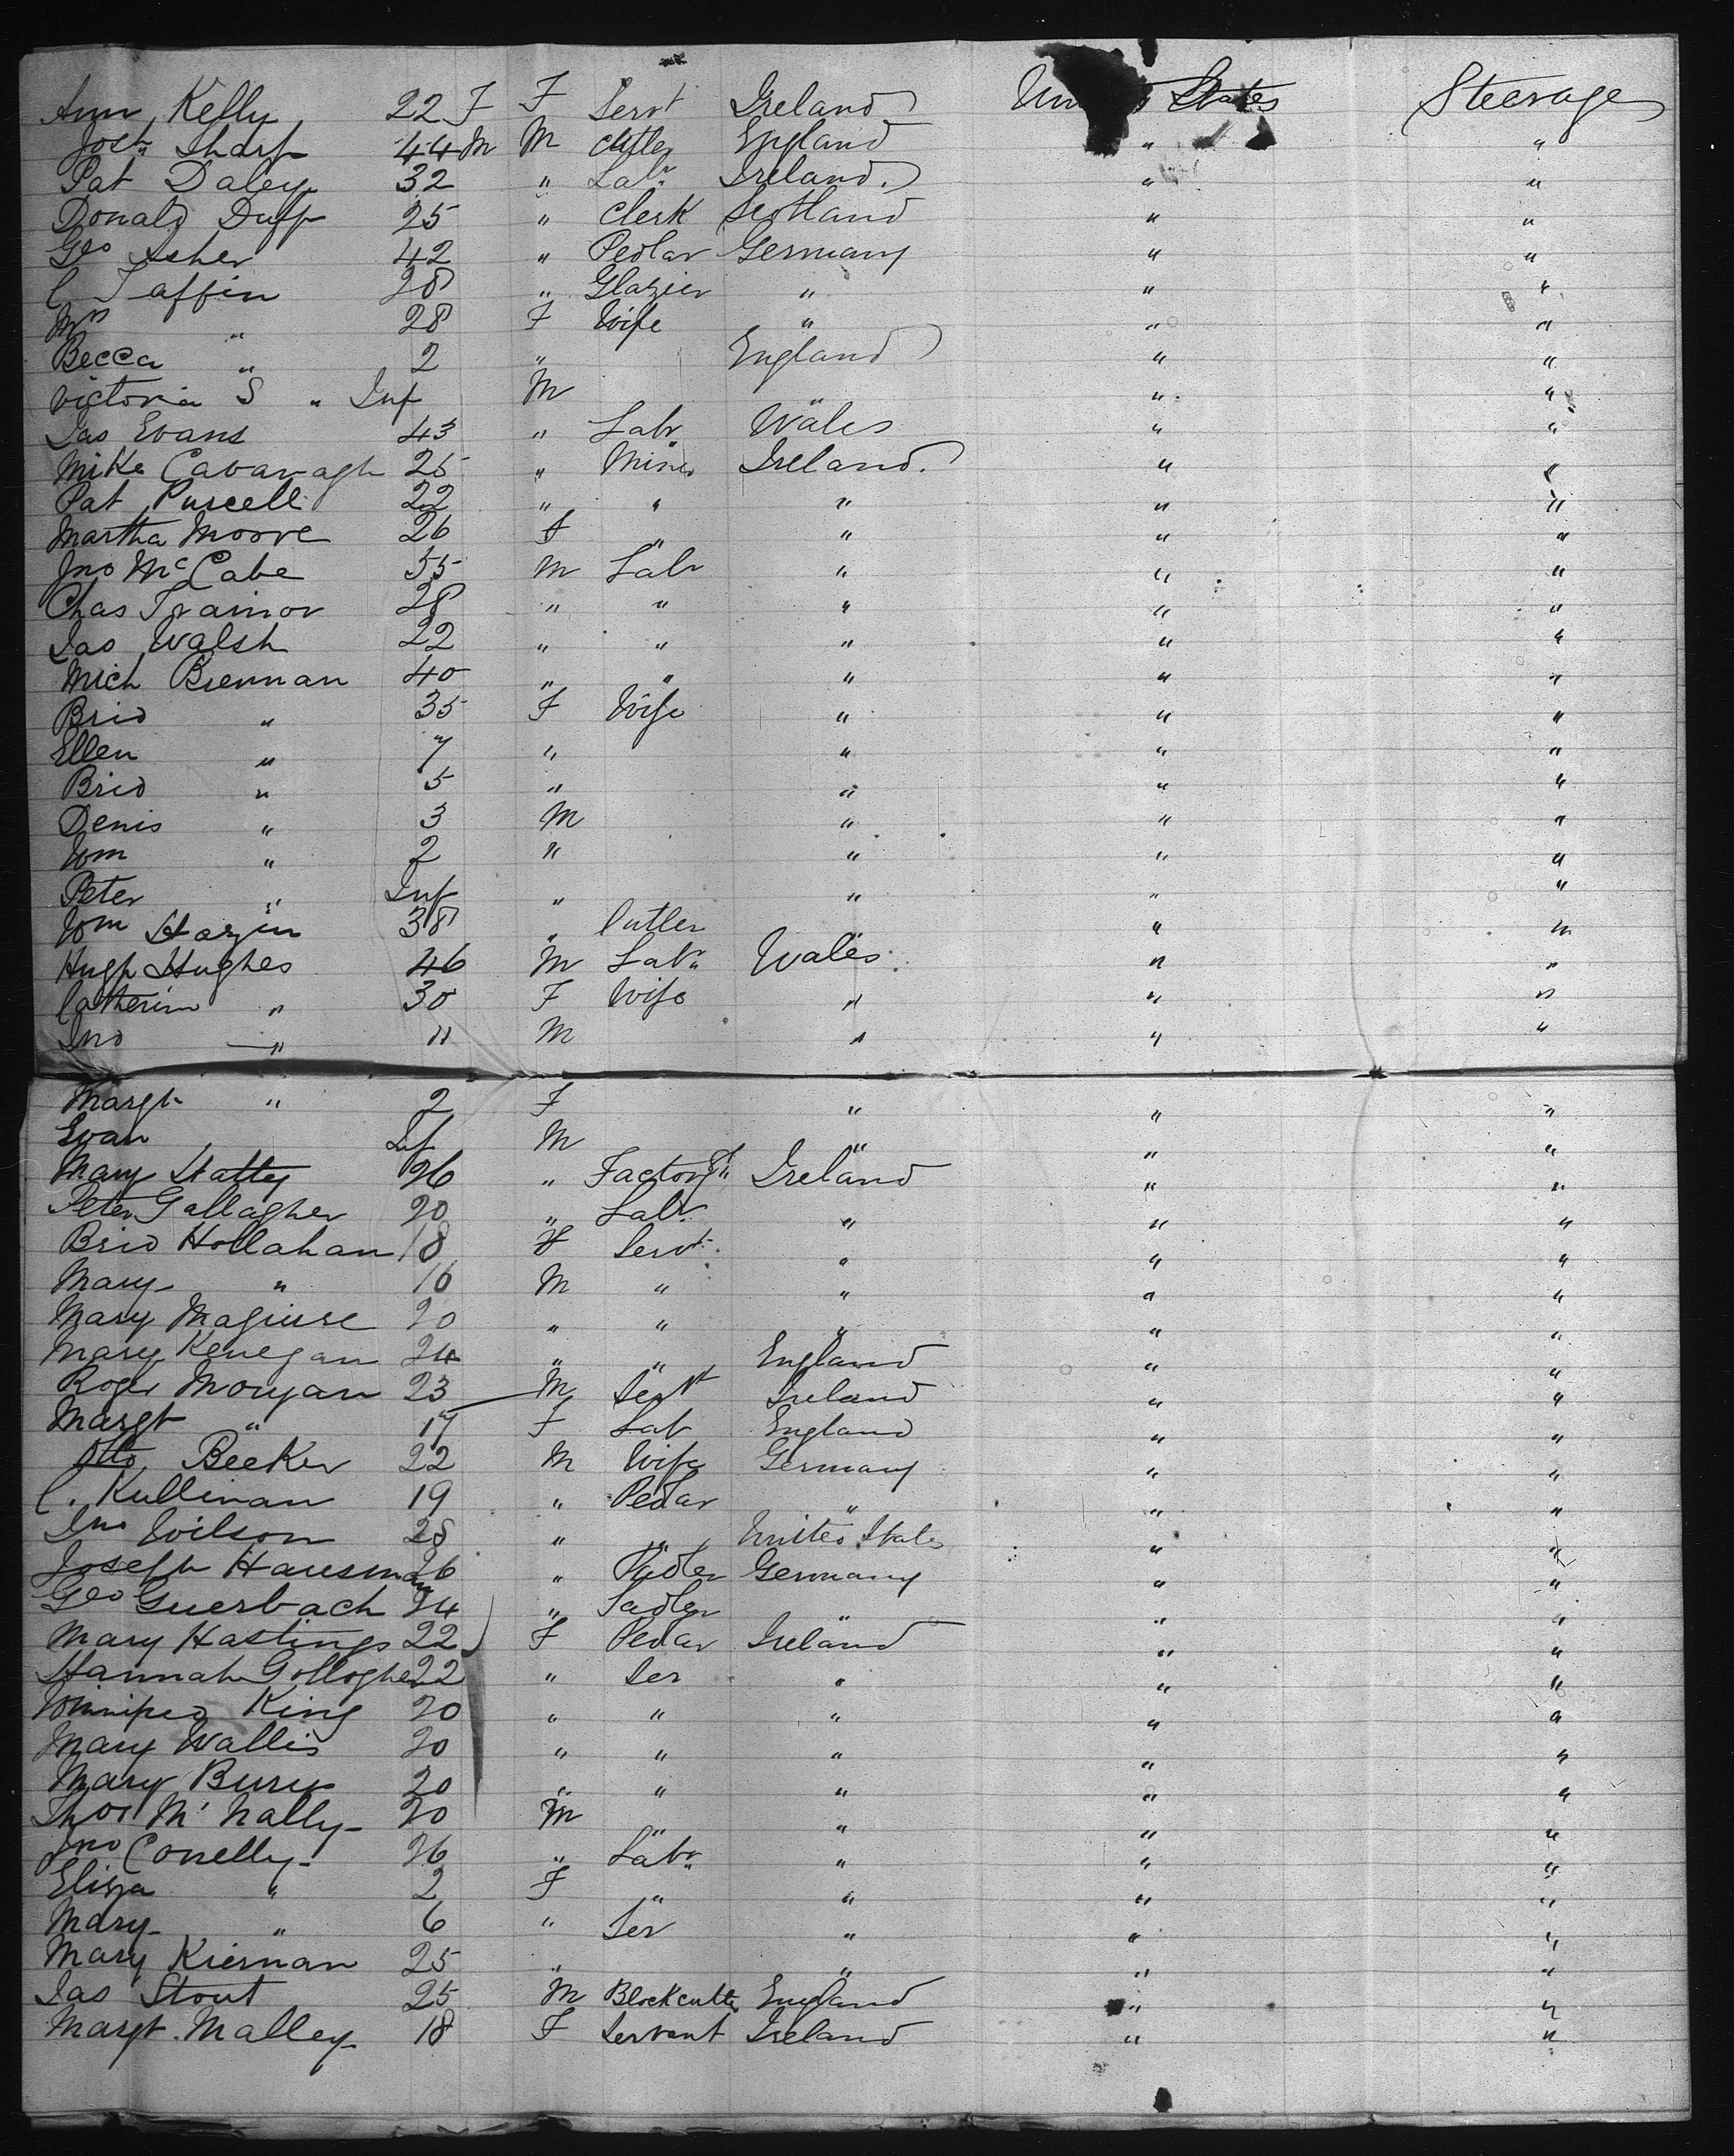 Ann Kelly 22 F F Servt Ireland United States Steerage
Josh Sharp 44 M M Cutler England " "
Pat Daley 32 " Labr Ireland " "
Donald Duff 25 " Clerk Scotland " "
Geo Asher 42 " Pedlar Germany " "
C Taffin 28 " Glazier " " "
Mrs " 28 F Wife " " "
Becca " 2 " England " "
Victoria S " Inf M " " "
Jas Evans 43 " Labr Wales " "
Mike Cavanagh 25 " Miner Ireland " "
Pat Purcell 22 " " " " "
Martha Moore 26 F " " " "
Jno McCabe 35 M Labr " " "
Chas Trainor 28 " " " " "
Jas Walsh 22 " " " " "
Mich Brennan 40 " " " " "
Brid " 35 F Wife " " "
Ellen " 7 " " " "
Brid " 5 " " " "
Denis " 3 M " " "
Wm " 2 " " " "
Peter " Inf " " " "
Wm Hazin 38 " Cutler " " "
Hugh Hughes 46 M Labr Wales " "
Catherin " 30 F Wife " " "
Jno " 11 M " " "
Margt " 2 F " " "
Evan Inf M " " "
Mary Hatty 26 " Factory Ireland " "
Peter Gallagher 20 " Labr " " "
Brid Hollahan 18 F Servt " " "
Mary " 16 M " " " "
Mary Maguire 20 " " " " "
Mary Kenegan 24 " " England " "
Roger Morgan 23 M Servt Ireland " "
Margt " 17 F Lab England " "
Otto Becker 22 M Wife Germany " "
C. Kullinan 19 " Pedar " " "
Jno Wilson 28 " " United States " "
Joseph Hausman 26 " Pedler Germany " "
Geo Guerbach 24 " Sadler " " "
Mary Hastings 22 F Pedar Ireland " "
Hannah Gollogher 22 " Ser " " "
Winnifred King 20 " " " " "
Mary Wallis 20 " " " " "
Mary Burus 20 " " " " "
Thos M' Nally 20 M " " " "
Jno Conelly 26 " Labr " " "
Eliza " 2 F " " " "
Mary " 6 " Ser " " "
Mary Kiernan 25 " " " "
Jas Stout 25 M Blockcutter England " "
Margt Malley 18 F Servant Ireland " "